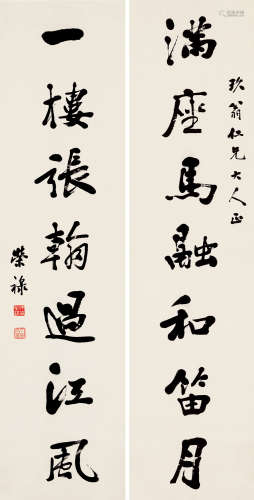 玖翁仁兄大人正
满座馬融和笛月
一樓張翰過江風
榮祿